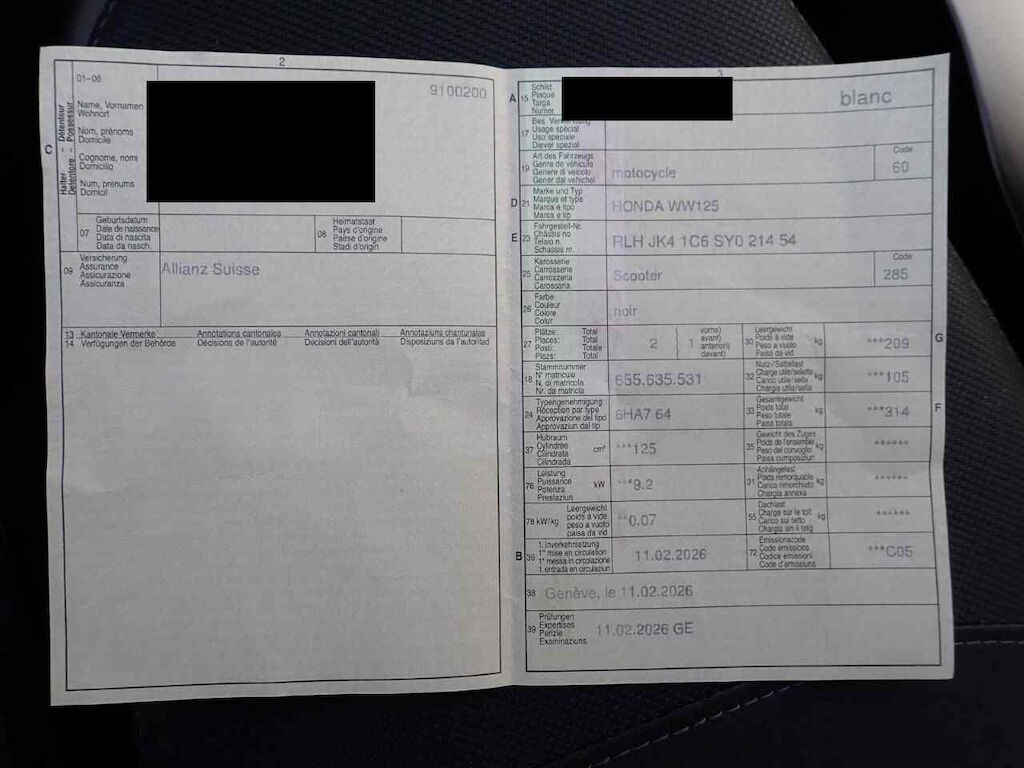 2
01-06
9100200
C
Halter - Détenteur
Detentore - Possessur
Name, Vornamen
Wohnort
Nom, prénoms
Domicile
Cognome, nomi
Domicilio
Num, prenums
Domicil
07
Geburtsdatum
Date de naissance
Data di nascita
Data da nasch.
08
Heimatstaat
Pays d'origine
Paese d'origine
Stadi d'origin
09
Versicherung
Assurance
Assicurazione
Assicuranza
Allianz Suisse
13 Kantonale Vermerke Annotations cantonales Annotazioni cantonali Annotaziuns chantunales
14 Verfügungen der Behörde Décisions de l'autorité Decisioni dell'autorità Disposiziuns da l'autoritad
3
A
15
Schild
Plaque
Targa
Numer
blanc
17
Bes.
Usage spécial
Uso speciale
Diever spezial
19
Art des Fahrzeugs
Genre de véhicule
Genere di veicolo
Gener dal vehichel
motocycle
Code
60
D
21
Marke und Typ
Marque et type
Marca e tipo
Marca e tip
HONDA WW125
E
23
Fahrgestell-Nr.
Châssis no
Telaio n.
Schassis nr.
RLH JK4 1C6 SY0 214 54
25
Karosserie
Carrosserie
Carrozzeria
Carossaria
Scooter
Code
285
26
Farbe
Couleur
Colore
Colur
noir
27
Plätze: Total
Places: Total
Posti: Totale
Plazs: Total
2
( 1
vorne)
avant)
anteriori)
davant)
30
Leergewicht
Poids à vide
Peso a vuoto
Paisa da vid
kg
***209
G
18
Stammnummer
N° matricule
N. di matricola
Nr. da matricla
655.635.531
32
Nutz-/Sattellast
Charge utile/sellette
Carico utile/sella
Chargia utila/sella
kg
***105
24
Typengenehmigung
Réception par type
Approvazione del tipo
Approvaziun dal tip
6HA7 64
33
Gesamtgewicht
Poids total
Peso totale
Paisa totala
kg
***314
F
37
Hubraum
Cylindrée
Cilindrata
Cilindrada
cm³
***125
35
Gewicht des Zuges
Poids de l'ensemble
Peso del convoglio
Paisa cumposiziun
kg
******
76
Leistung
Puissance
Potenza
Prestaziun
kW
***9.2
31
Anhängelast
Poids remorquable
Carico rimorchiato
Chargia annexa
kg
******
78 kW/kg
Leergewicht
poids à vide
peso a vuoto
paisa da vid
**0.07
55
Dachlast
Charge sur le toit
Carico sul tetto
Chargia sin il tetg
kg
******
B
36
1. Inverkehrsetzung
1re mise en circulation
1a messa in circolazione
1. entrada en circulaziun
11.02.2026
72
Emissionscode
Code émissions
Codice emissioni
Code d'emissiuns
***C05
38 Genève, le 11.02.2026
39
Prüfungen
Expertises
Perizie
Examinaziuns
11.02.2026 GE